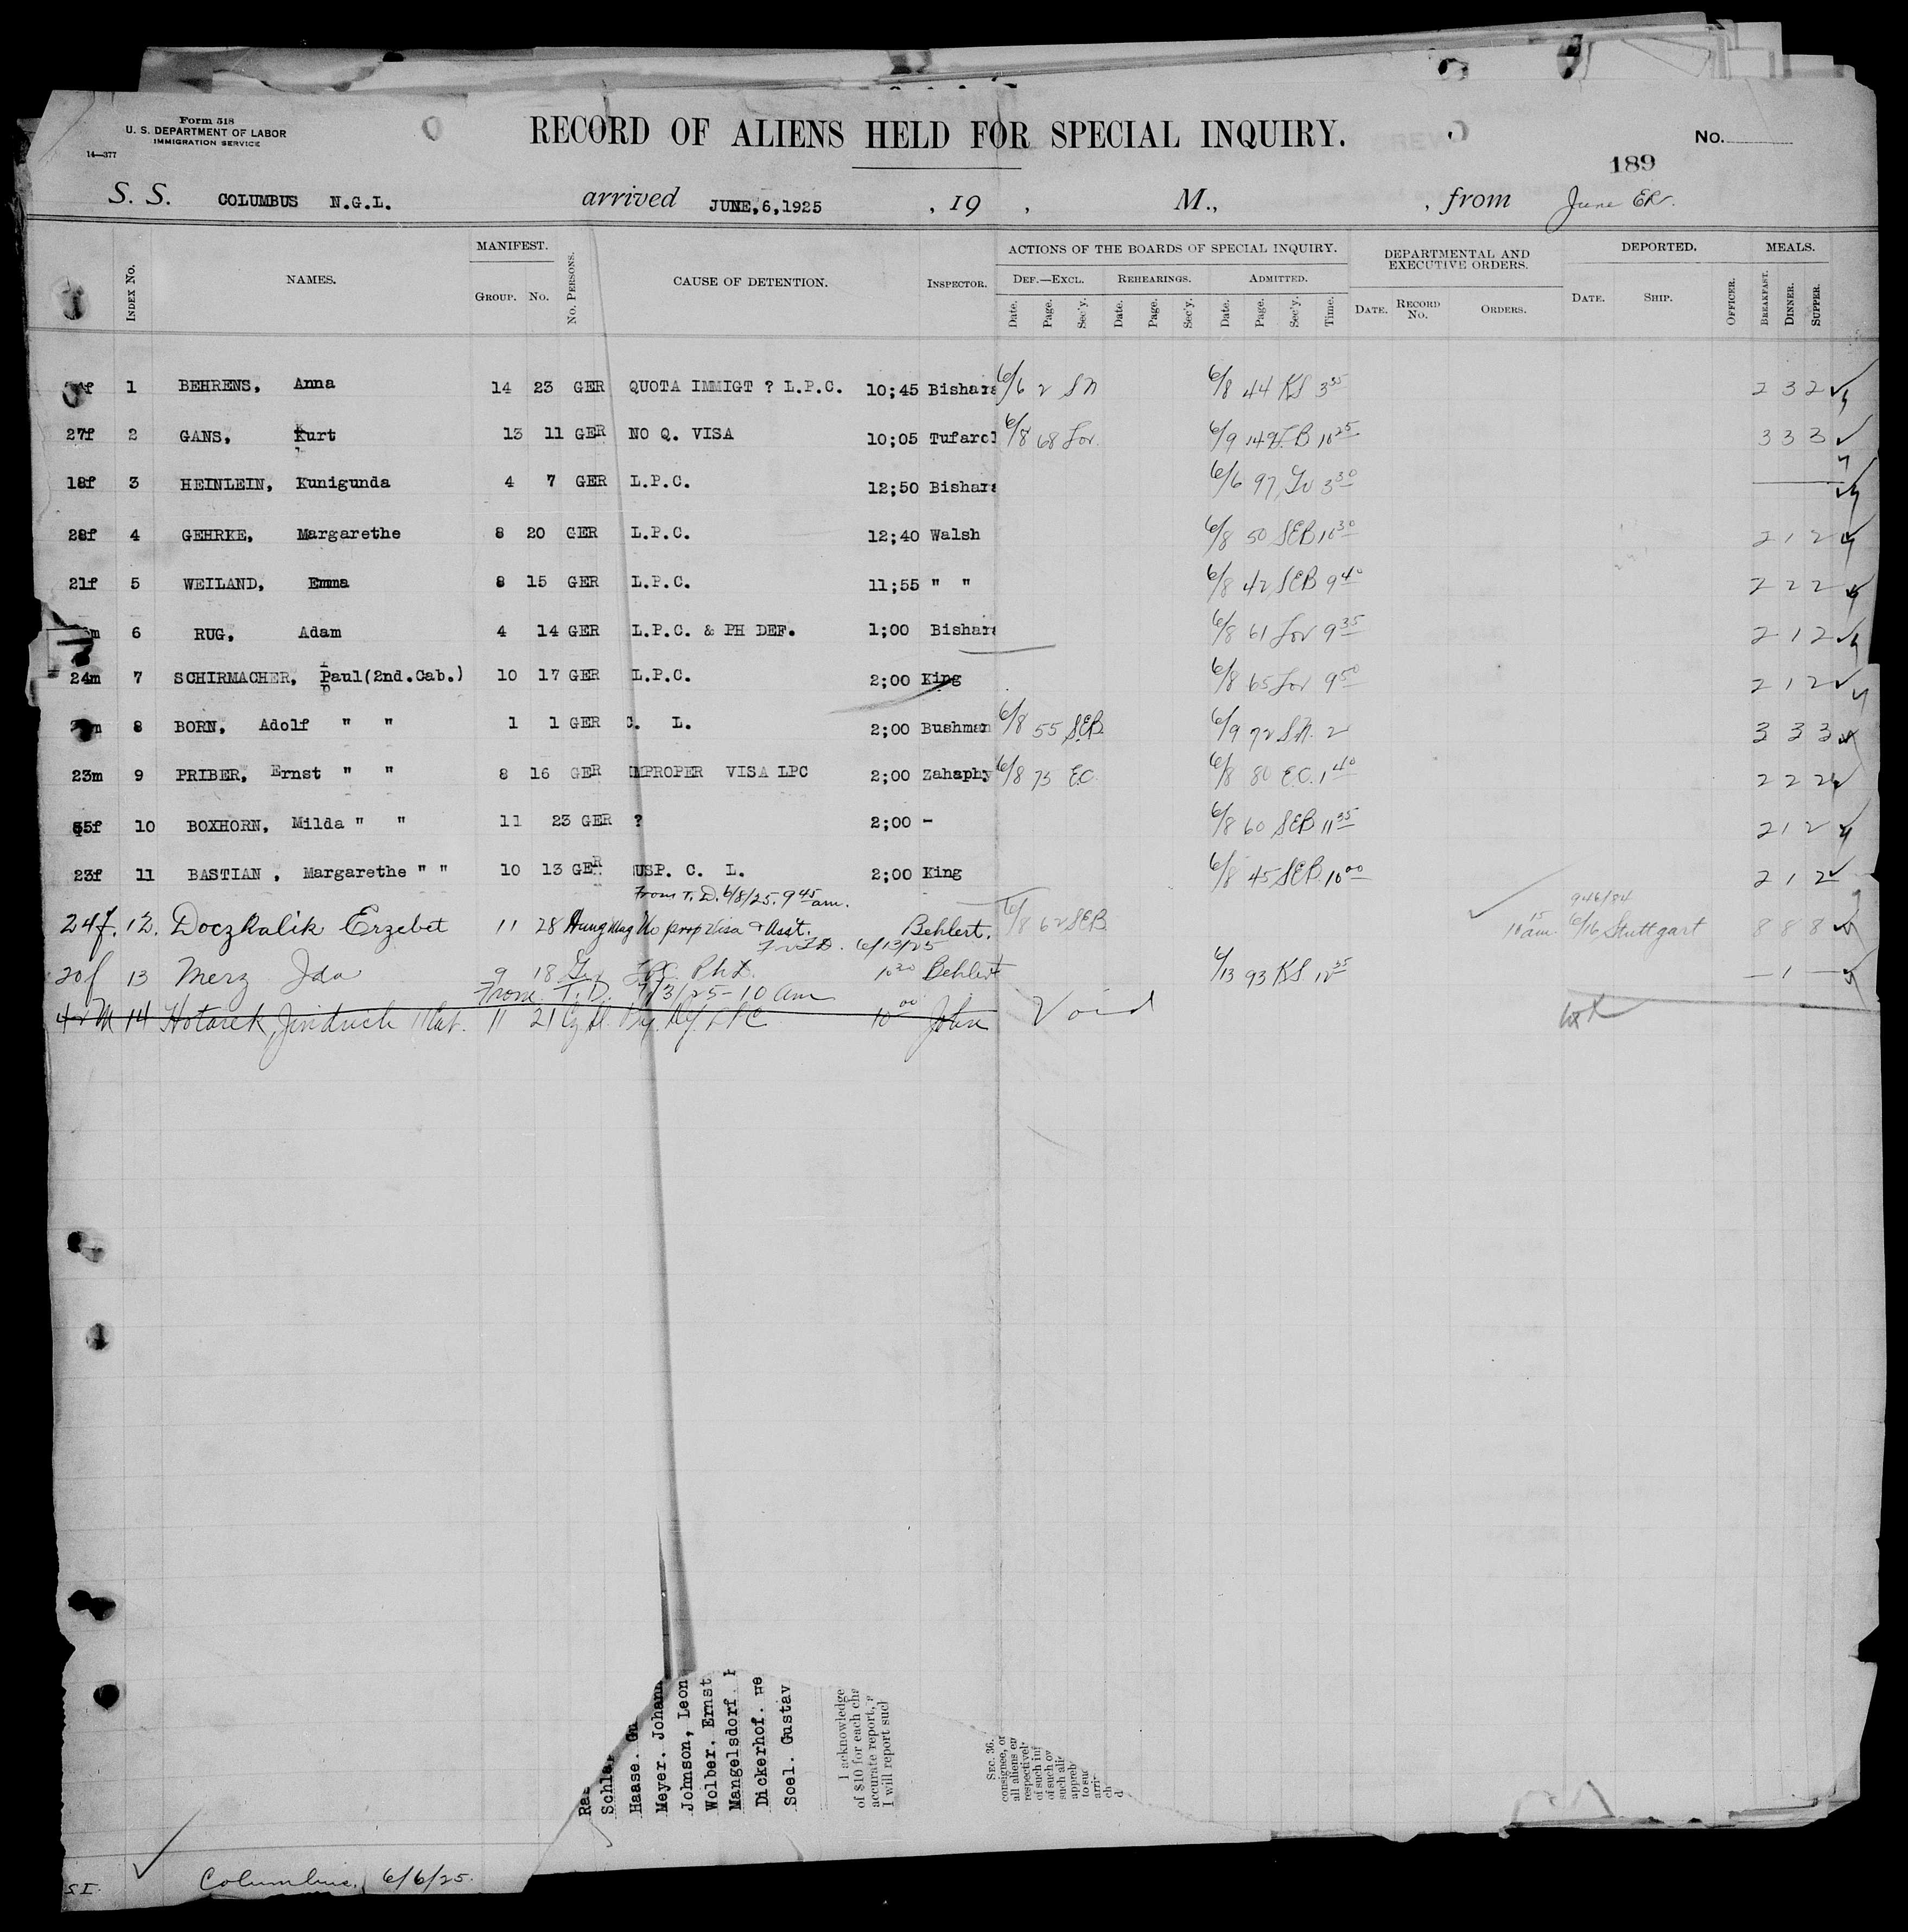 Form 518
U. S. DEPARTMENT OF LABOR
IMMIGRATION SERVICE
14—377
RECORD OF ALIENS HELD FOR SPECIAL INQUIRY.
No.
189
S. S. COLUMBUS N.G.L. arrived JUNE,6,1925 , 19 , M., , from June
Index No. NAMES. MANIFEST. Group. No. No. Persons. CAUSE OF DETENTION. Inspector. ACTIONS OF THE BOARDS OF SPECIAL INQUIRY. DEPARTMENTAL AND EXECUTIVE ORDERS. DEPORTED. MEALS.
Def.—Excl. Rehearings. Admitted.
Date. Page. Sec'y. Date. Page. Sec'y. Date. Page. Sec'y. Time. Date. Record No. Orders. Date. Ship. Officer. Breakfast. Dinner. Supper.
1 BEHRENS, Anna 14 23 GER QUOTA IMMIGT ? L.P.C. 10;45 Bishara 6/6 2 SN 6/8 44 KS 3 35 2 3 2
27f 2 GANS, Kurt 13 11 GER NO Q. VISA 10;05 Tufarol 6/8 68 Lov. 6/9 14 B 10 25 3 3 3
18f 3 HEINLEIN, Kunigunda 4 7 GER L.P.C. 12;50 Bishara 6/6 97 3 30
28f 4 GEHRKE, Margarethe 8 20 GER L.P.C. 12;40 Walsh 6/8 50 SEB 10 30 2 1 2
21f 5 WEILAND, Emma 8 15 GER L.P.C. 11;55 " " 6/8 42 SEB 9 40 2 2 2
m 6 RUG, Adam 4 14 GER L.P.C. & PH DEF. 1;00 Bishara 6/8 61 Lov 9 35 2 1 2
24m 7 SCHIRMACHER, Paul(2nd.Cab.) 10 17 GER L.P.C. 2;00 King 6/8 65 Lov 9 50 2 1 2
m 8 BORN, Adolf " " 1 1 GER C. L. 2;00 Bushman 6/8 55 SEB 6/9 72 SN. 2 3 3 3
23m 9 PRIBER, Ernst " " 8 16 GER IMPROPER VISA LPC 2;00 Zahaphy 6/8 75 E.C. 6/8 80 E.C. 1 40 2 2 2
55f 10 BOXHORN, Milda " " 11 23 GER ? 2;00 - 6/8 60 SEB 11 35 2 1 2
23f 11 BASTIAN , Margarethe " " 10 13 GER USP. C. L. 2;00 King 6/8 45 SEB 10 00 2 1 2
From T. D. 6/8/25. 9 45 am.
24f. 12. Doczkalik Erzebet 11 28 Hung Mag No prop Visa & Asst. Behlert. 6/8 62 SEB 10 15 am 946/84 6/16 Stuttgart 8 8 8
Fr T.D. 6/13/25
20f 13 Merz Ida 9 18 Ger LPC. Ph D. 10 20 Behlert 6/13 93 KS 10 35 — 1 —
From T. D. 7/3/25 - 10 am
42 M 14 Hotarek, Jindrich 11 21 LPC 10 00 John Void
Schla
Haase. Gu
Meyer. Johann
Johnson, Leon
Wolber. Ernst
Mangelsdorf.
Dickerhof. We
Soel. Gustav
I acknowledge
of $10 for each cha
accurate report,
I will report such
Sec. 36.
consignee, or
all aliens em
respectivel
of such inf
of such ov
such alie
appreb
to suc
arri
ch
d
SI. Columbus. 6/6/25.